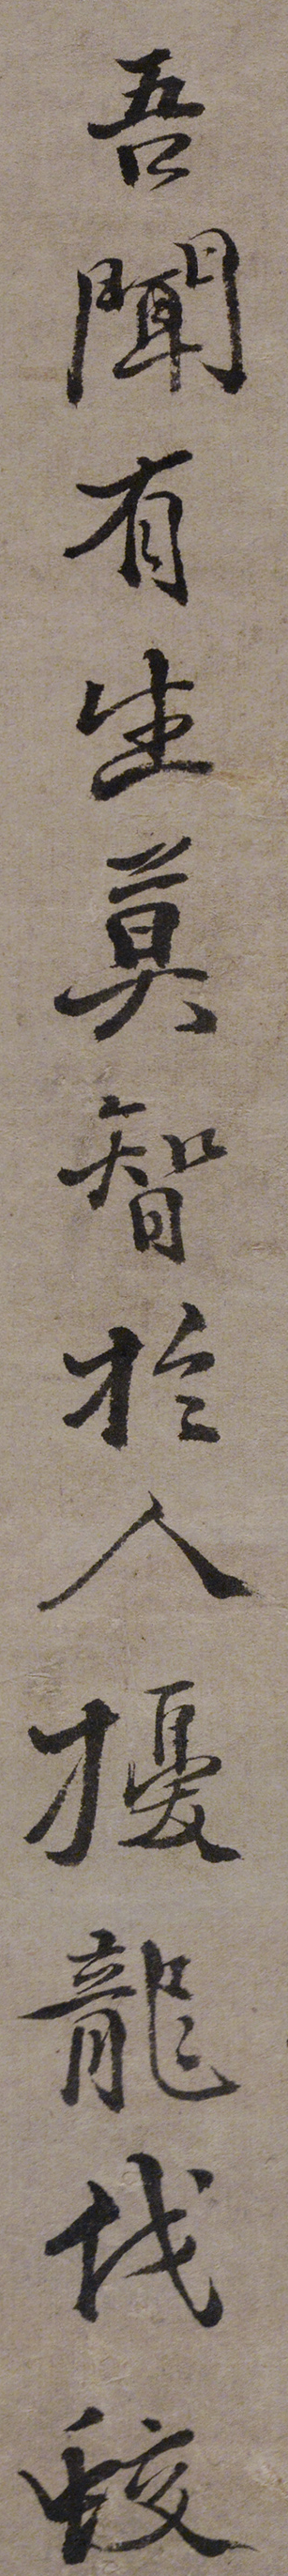 吾聞有生莫智於人擾龍伐蛟